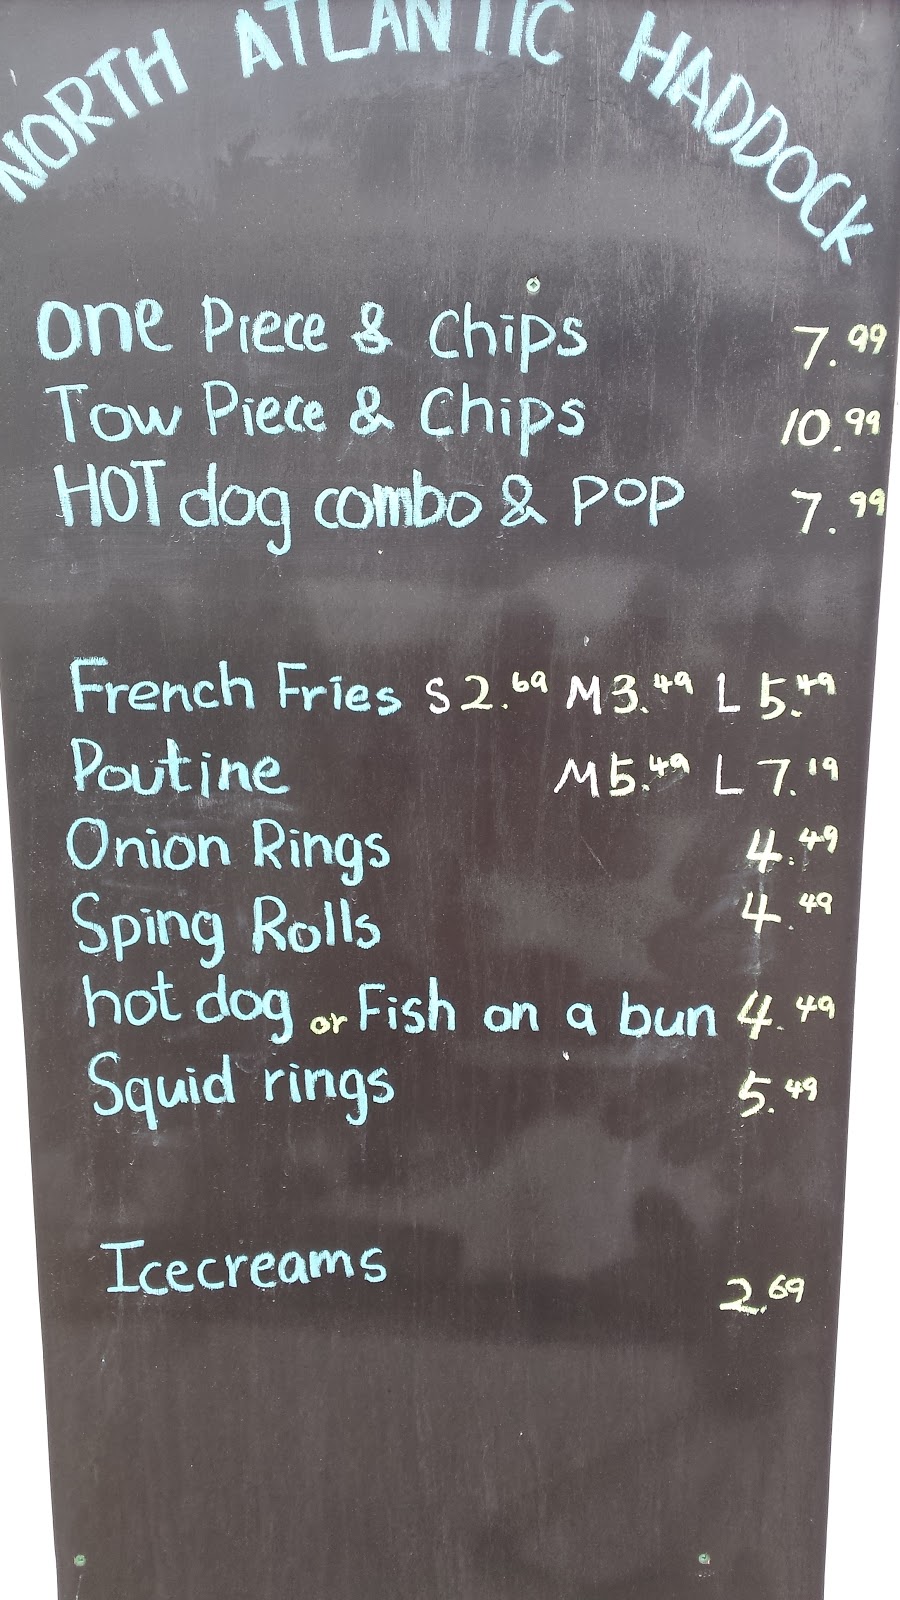 NORTH ATLANTIC HADDOCK
One Piece & Chips 7.99
Tow Piece & Chips 10.99
HOT dog combo & POP 7.99
French Fries S 2.69 M 3.49 L 5.49
Poutine M 5.49 L 7.19
Onion Rings 4.49
Sping Rolls 4.49
hot dog or Fish on a bun 4.49
Squid rings 5.49
Icecreams 2.69